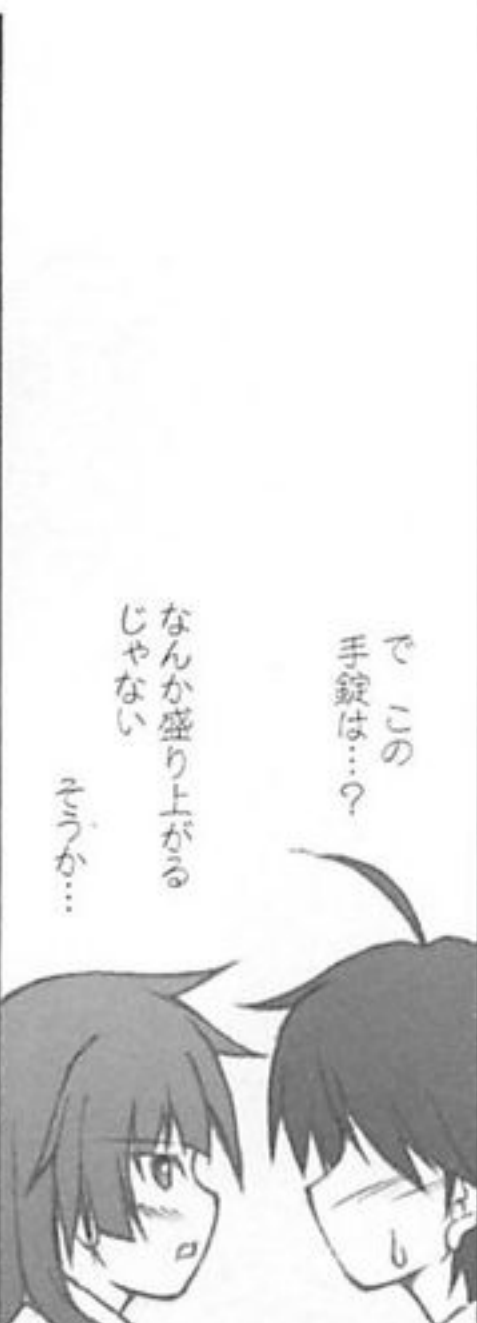 で この
手錠は…?
なんか盛り上がる
じゃない
そうか…